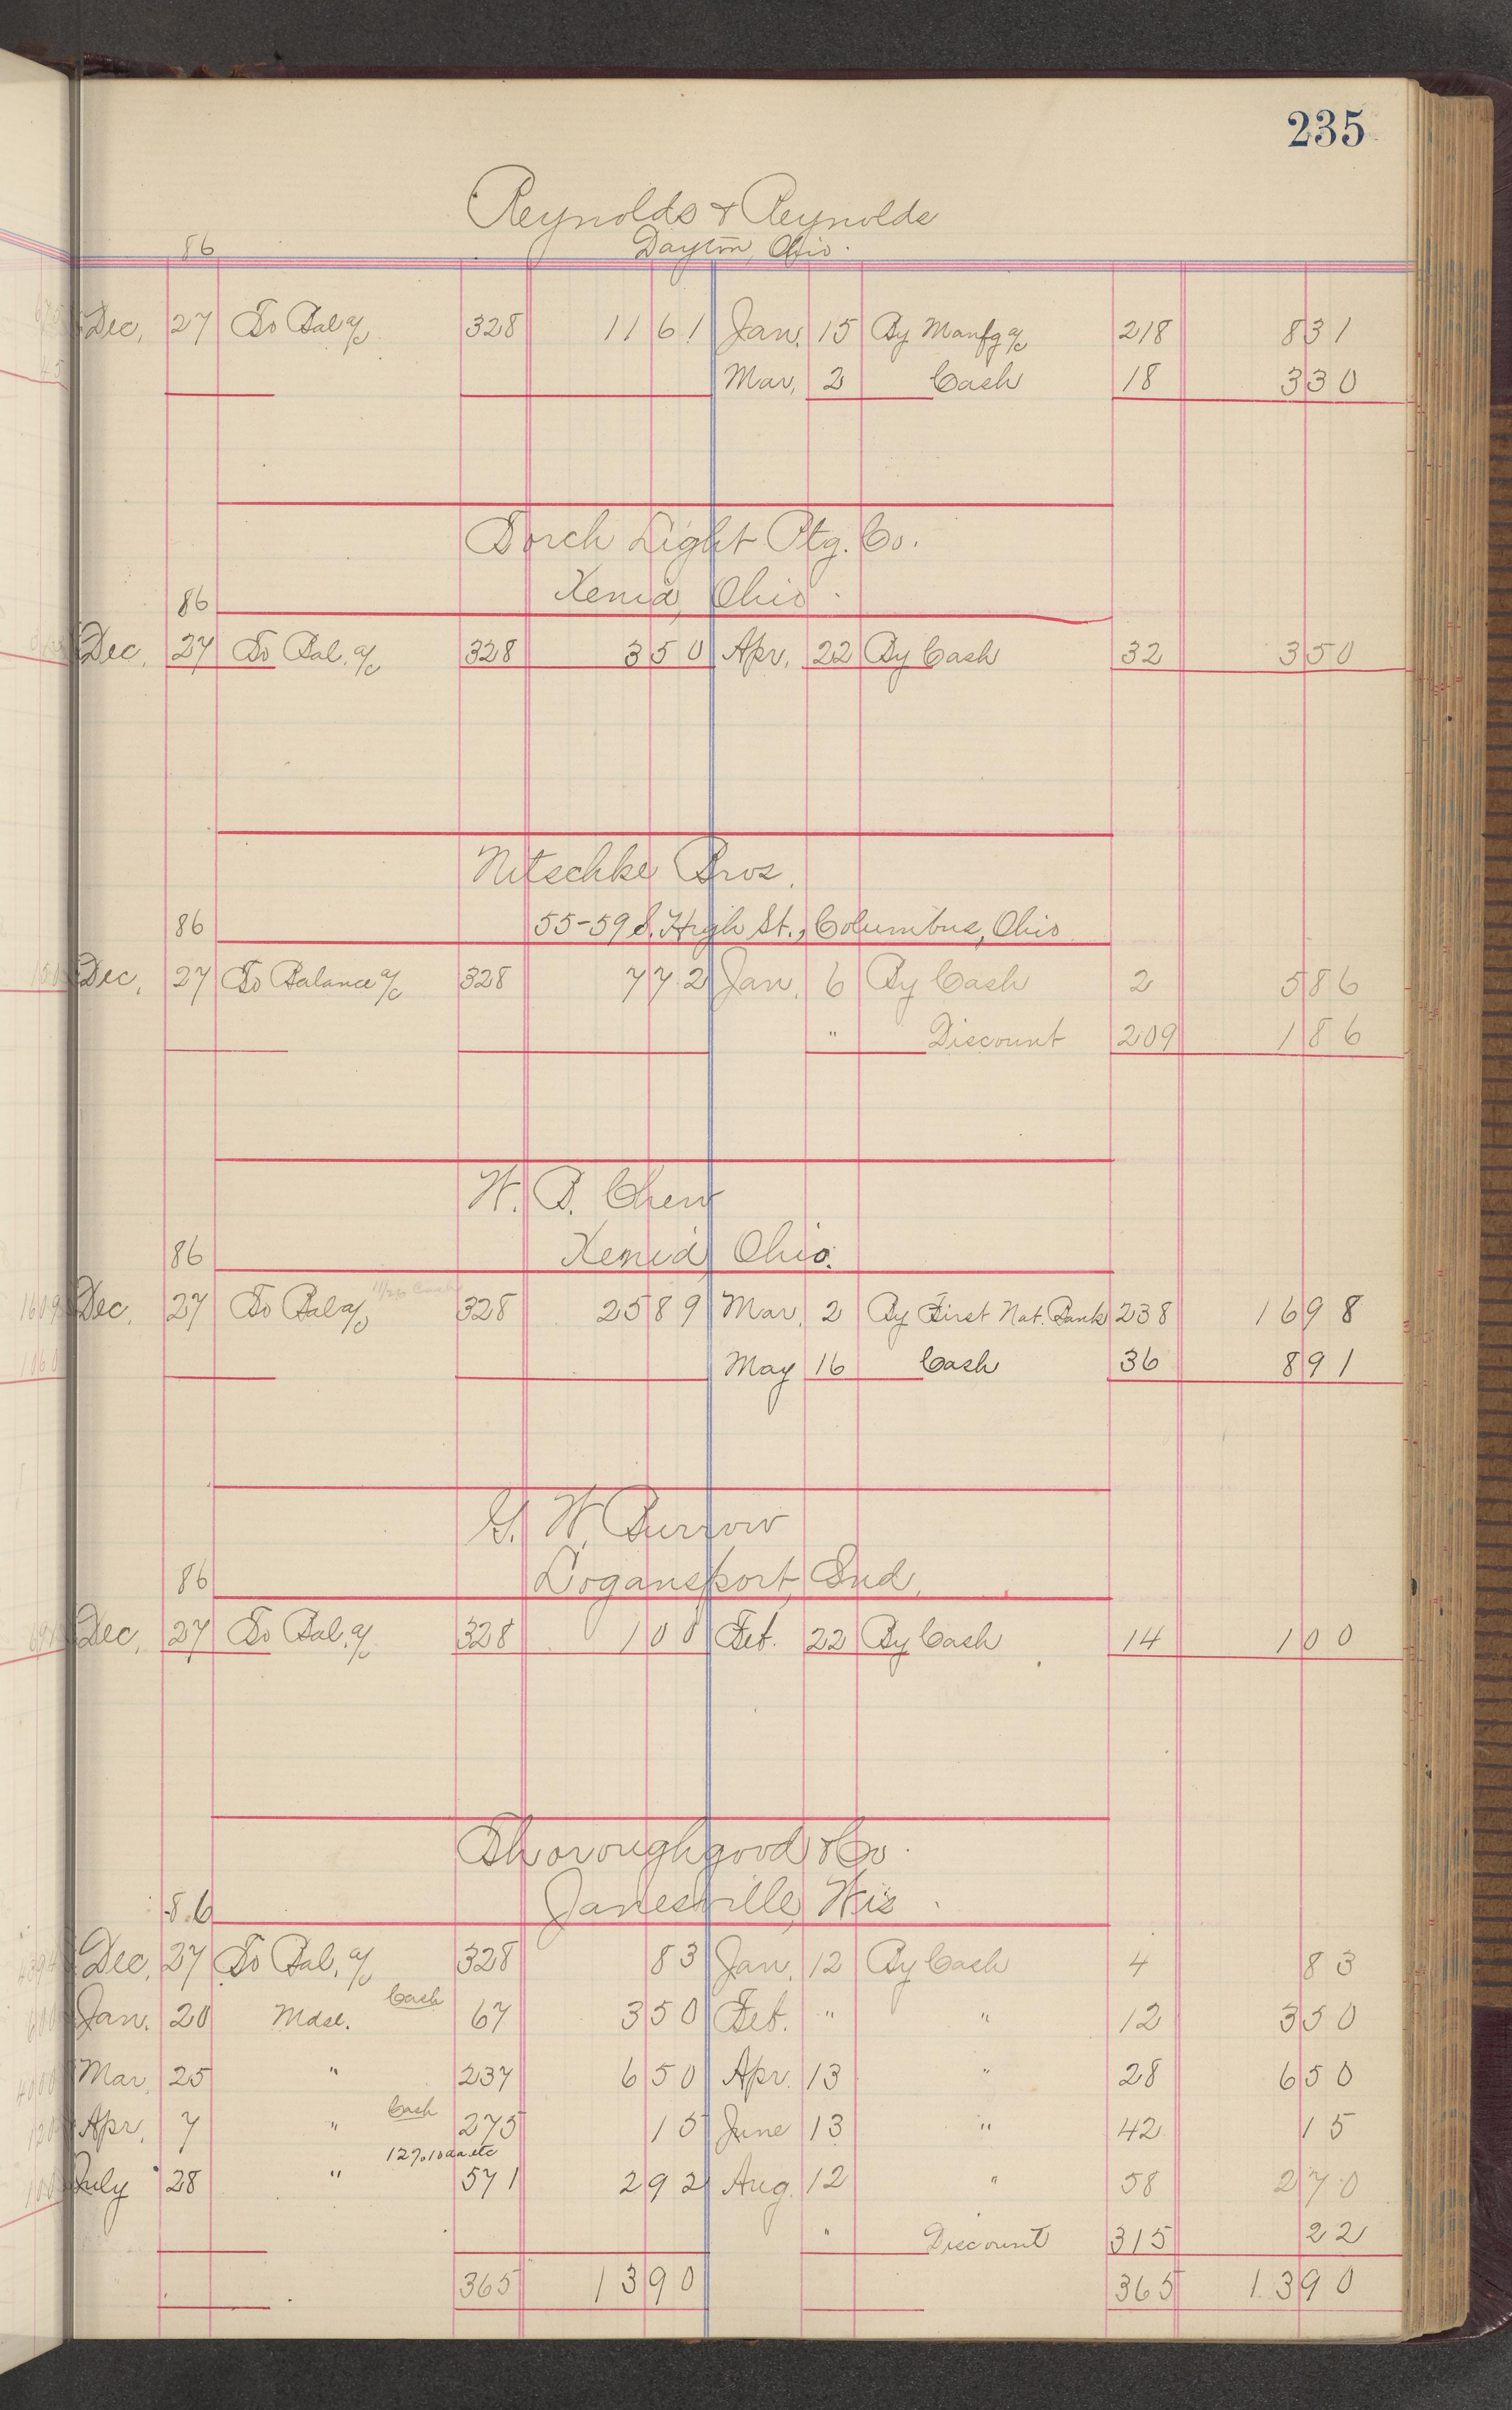 235
Reynolds & Reynolds
86 Dayton, Ohio.
Dec. 27 To Bal a/c 328 11 61 Jan. 15 By Manfg a/c 218 8 31
Mar. 2 Cash 18 3 30
Torch Light Ptg. Co.
86 Xenia, Ohio.
Dec. 27 To Bal. a/c 328 3 50 Apr. 22 By Cash 32 3 50
Nitschke Bros.
86 55-59 S. High St., Columbus, Ohio
Dec. 27 To Balance a/c 328 7 72 Jan. 6 By Cash 2 5 86
" Discount 209 1 86
W. B. Chew
86 Xenia, Ohio.
11/26 Cash
Dec. 27 To Bal a/c 328 25 89 Mar. 2 By First Nat. Bank 238 16 98
May 16 Cash 36 8 91
G. W. Burrow
86 Logansport, Ind.
Dec. 27 To Bal. a/c 328 1 00 Feb. 22 By Cash 14 1 00
Thoroughgood & Co.
86 Janesville, Wis.
Dec. 27 To Bal. a/c 328 83 Jan. 12 By Cash 4 83
Jan. 20 Mdse. Cash 67 3 50 Feb. " " 12 3 50
Mar. 25 " 237 6 50 Apr. 13 " 28 6 50
Apr. 7 " Cash 275 15 June 13 " 42 15
July 28 " 12%10 da etc 571 2 92 Aug. 12 " 58 2 70
" Discount 315 22
365 13 90 365 13 90